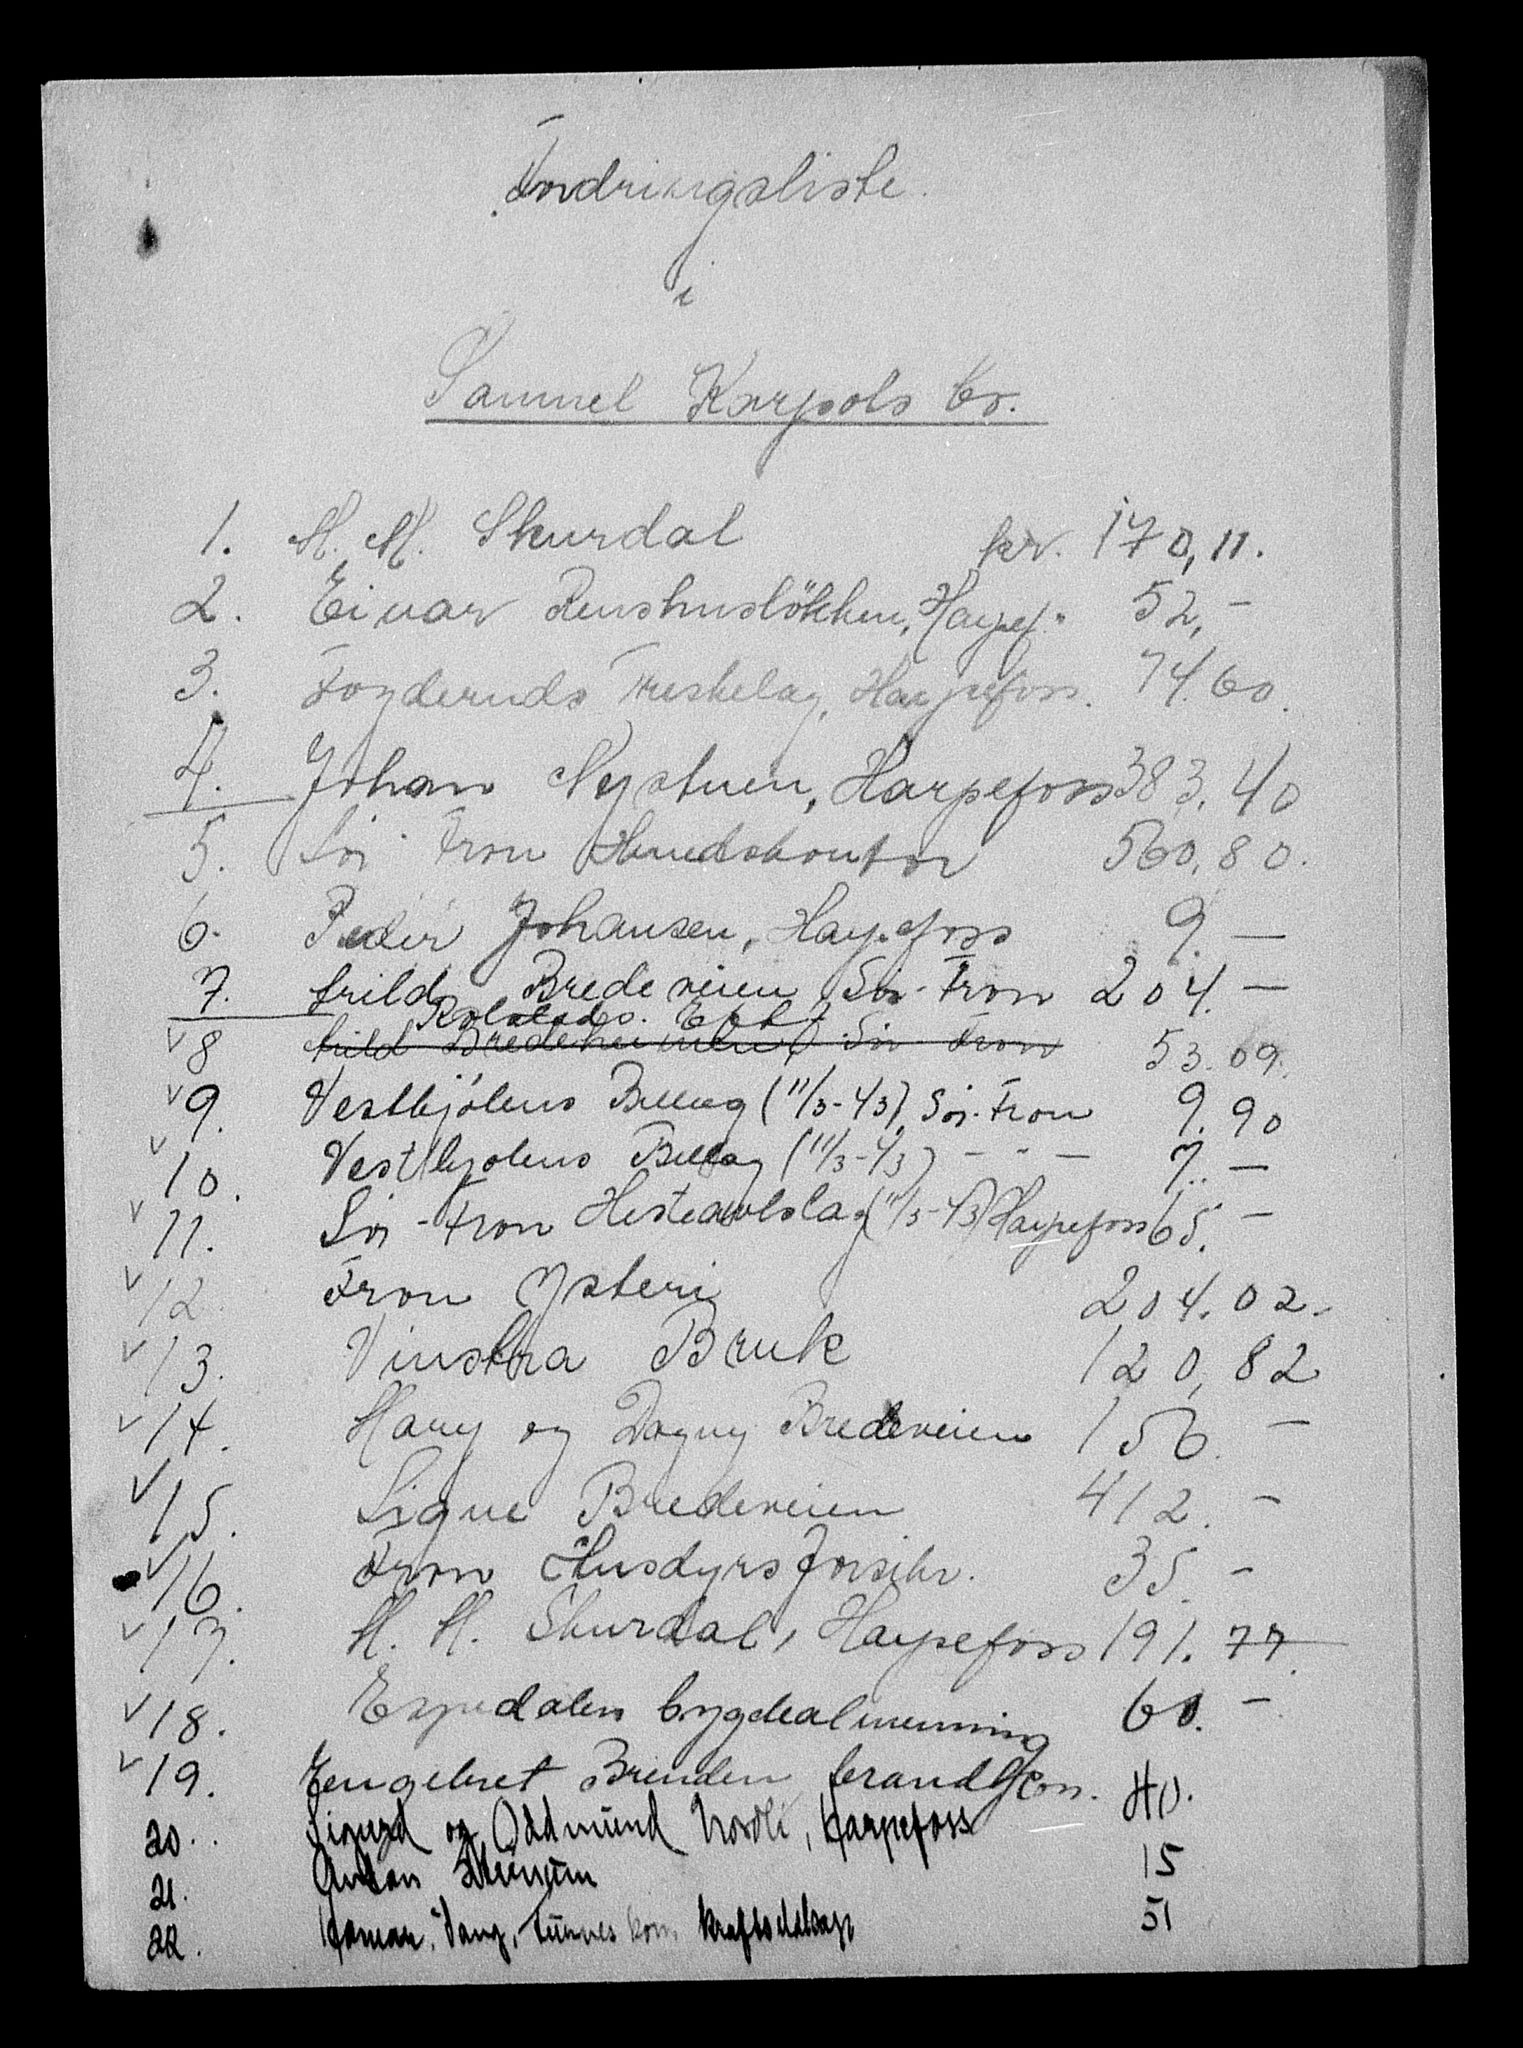 Fordringsliste
i
Samuel Karpols bo.
1. M. M. Skurdal kr. 170,11.
2. Einar Rushuslökken, Harpef. " 52,-
3. Treskelag, Harpefoss. 74.60.
4. Johan Nystuen, Harpefoss 383,40
5. Sör Fron 560,80.
6. Peder Johansen, Harpefoss 9.—
7. Arild Bredeveien Sör-Fron 204.—
v 8 Sör-Fron 53.09.
v 9. Vestkjölens Bulag (11/3-43), Sör-Fron 9.90
v 10. Vestkjölens Bulag (11/3-43) - - - 7.—
v 11. Sör-Fron Hesteavlslag (11/3-43) Harpefoss 65.-
v 12 Fron Ysteri 204.02.
v 13. Vinstra Bruk 120,82
v 14. Mary og Dagny Bredeveien 156.-
v 15. Signe Bredeveien 412.-
v 16. Fron Husdyrsforsikr. 35.-
v 17. M. M. Skurdal, Harpefoss 191.77.
v 18. Espedalen bygdealmenning 60.-
v 19. Engebret Brenden 40.
20. Sigurd og Oddmund Nordli, Harpefoss
21. Anton 15
22. Hamar, Vang, Furnes kom. kraftselskap 51